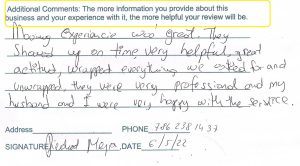 Additional Comments: The more information you provide about this
business and your experience with it, the more helpful your review will be.
Moving Experiencie was great. They
Showed up on time, very helpful, great
actitud, wrapped everything we asked for and
unwrapped, they were very professional and my
husband and I were very happy with the service.
Address PHONE 786 238 1437
SIGNATURE Mejia DATE 6/5/22